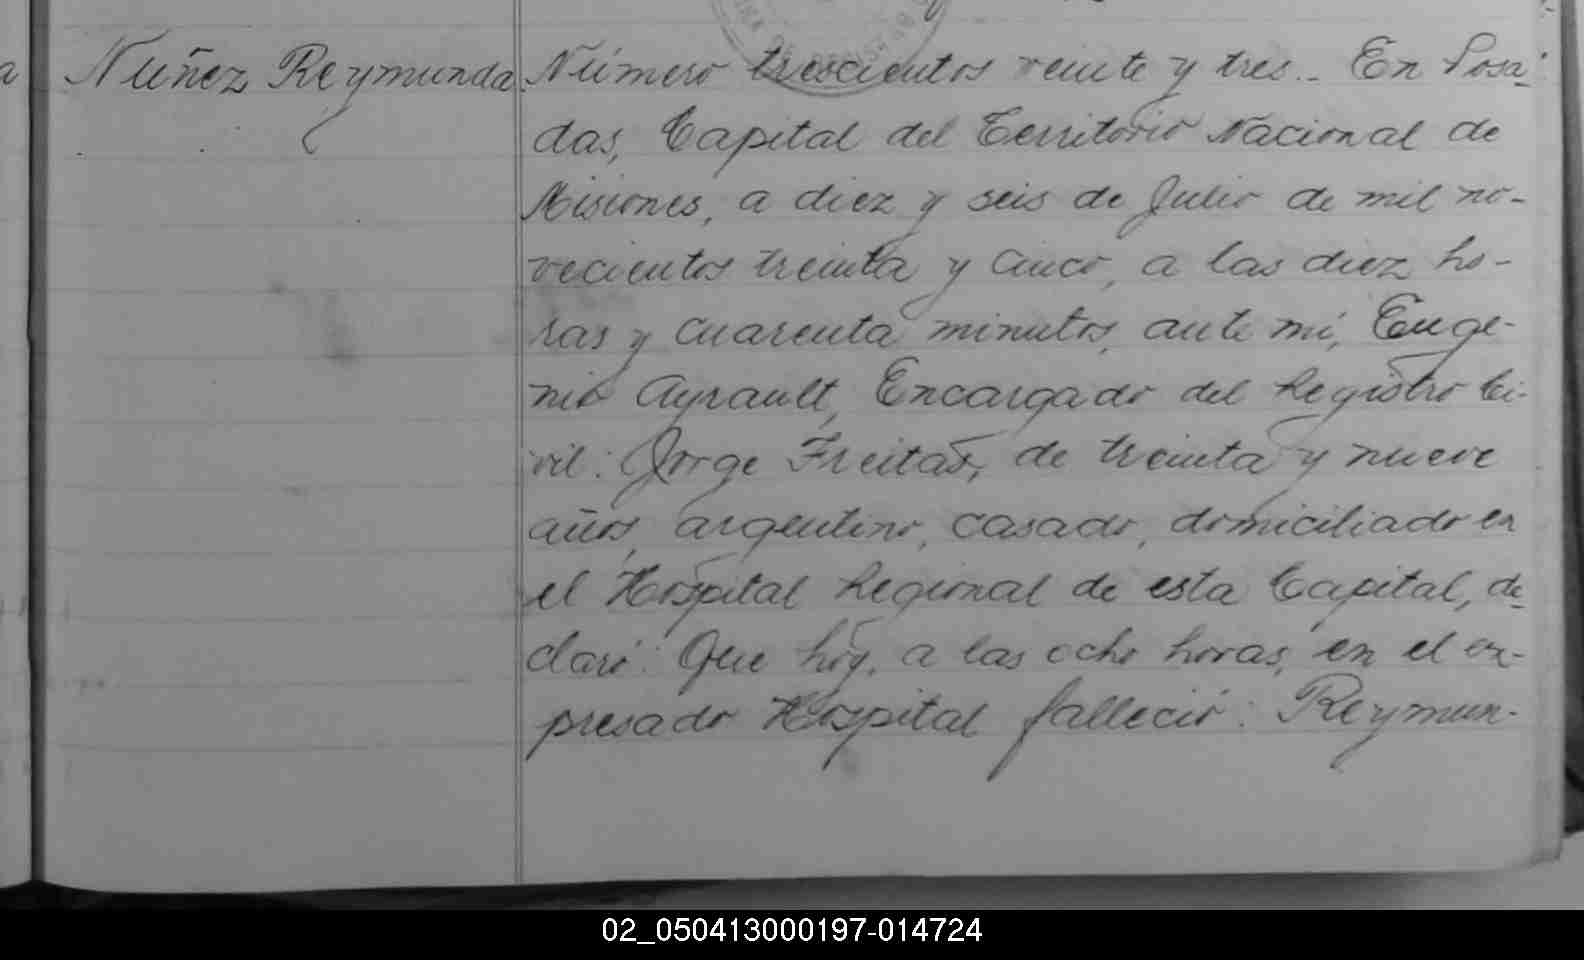 Nuñez Reymunda.
Número trescientos veinte y tres.. En Posa-
das, Capital del Territorio Nacional de
Misiones, a diez y seis de Julio de mil no-
vecientos treinta y cinco, a las diez ho-
ras y cuarenta minutos, ante mí, Euge-
nio Ayrault, Encargado del Registro Ci-
vil: Jorge Freitas, de treinta y nueve
años, argentino, casado, domiciliado en
el Hospital Regional de esta Capital, de-
claró: Que hoy, a las ocho horas, en el ex-
presado Hospital falleció: Reymun-
02_050413000197-014724